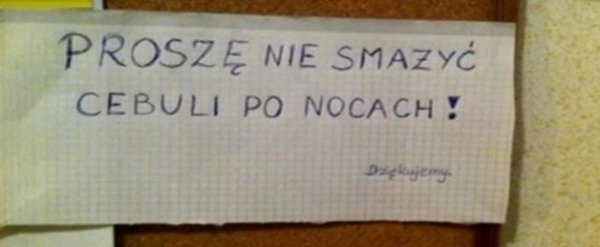 PROSZĘ NIE SMAŻYĆ
CEBULI PO NOCACH!
Dziękujemy.